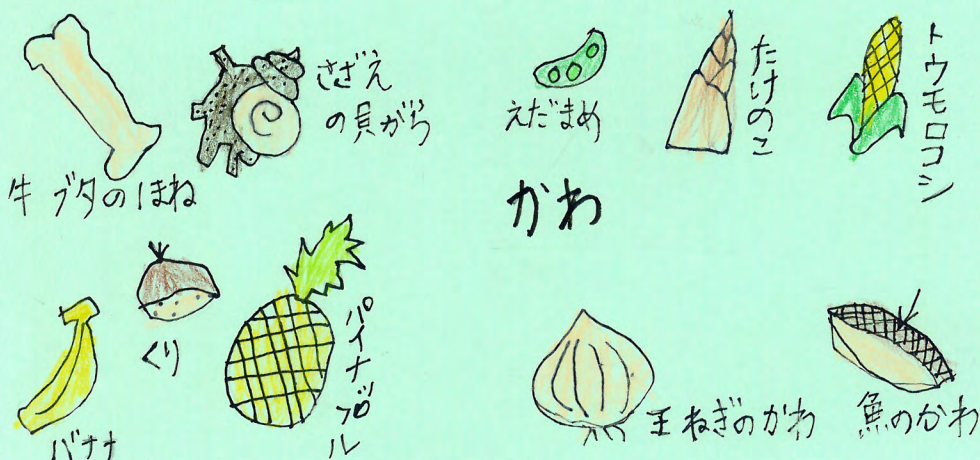 牛 ブタのほね
さざえ
の貝がら
えだまめ
たけのこ
トウモロコシ
かわ
バナナ
くり
パイナップル
玉ねぎのかわ
魚のかわ